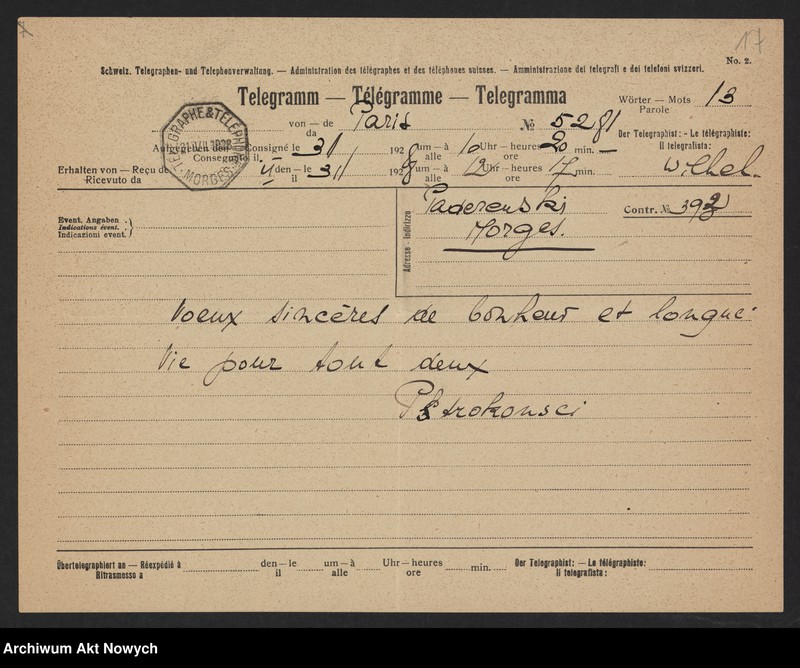 17
No. 2.
Schweiz. Telegraphen- und Telephonverwaltung. — Administration des télégraphes et des téléphones suisses. — Amministrazione dei telegrafi e dei telefoni svizzeri.
Telegramm — Télégramme — Telegramma
Wörter — Mots 13
Parole
von — de Paris № 5281
da
Der Telegraphist: — Le télégraphiste:
Il telegrafista:
Aufgegeben den — Consigné le 31 192 8 um — à 10 Uhr — heures 20 min. —
Consegnato il alle ore
Erhalten von — Reçu de den — le 31 192 8 um — à 12 Uhr — heures 7 min. Wilhel.
Ricevuto da il alle ore
TÉLÉGRAPHE & TÉLÉPHONE
MORGES
Event. Angaben
Indications évent.
Indicazioni event.
Adresse - Indirizzo
Paderewski
Morges.
Contr. № 392
Voeux sincères de bonheur et longue
Vie pour tout deux
Pstrokonsci
Übertelegraphiert an — Réexpédié à den — le um — à Uhr — heures min. Der Telegraphist: — Le télégraphiste:
Ritrasmesso a il alle ore Il telegrafista:
Archiwum Akt Nowych